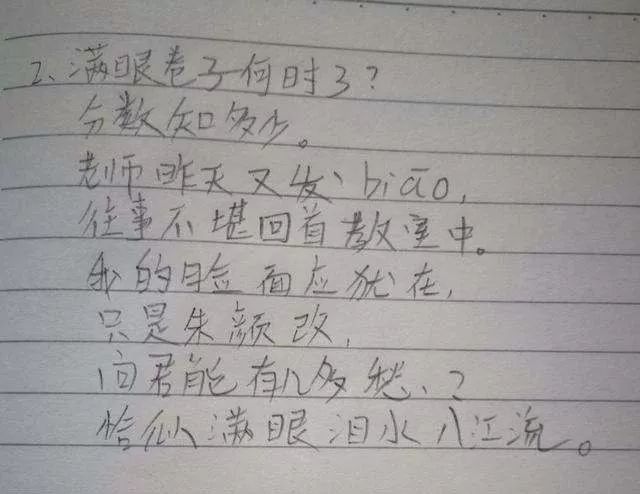 2、满眼卷子何时了?
分数知多少。
老师昨天又发biāo,
往事不堪回首教室中。
我的脸面应犹在,
只是朱颜改,
问君能有几多愁、?
恰似满眼泪水入江流。